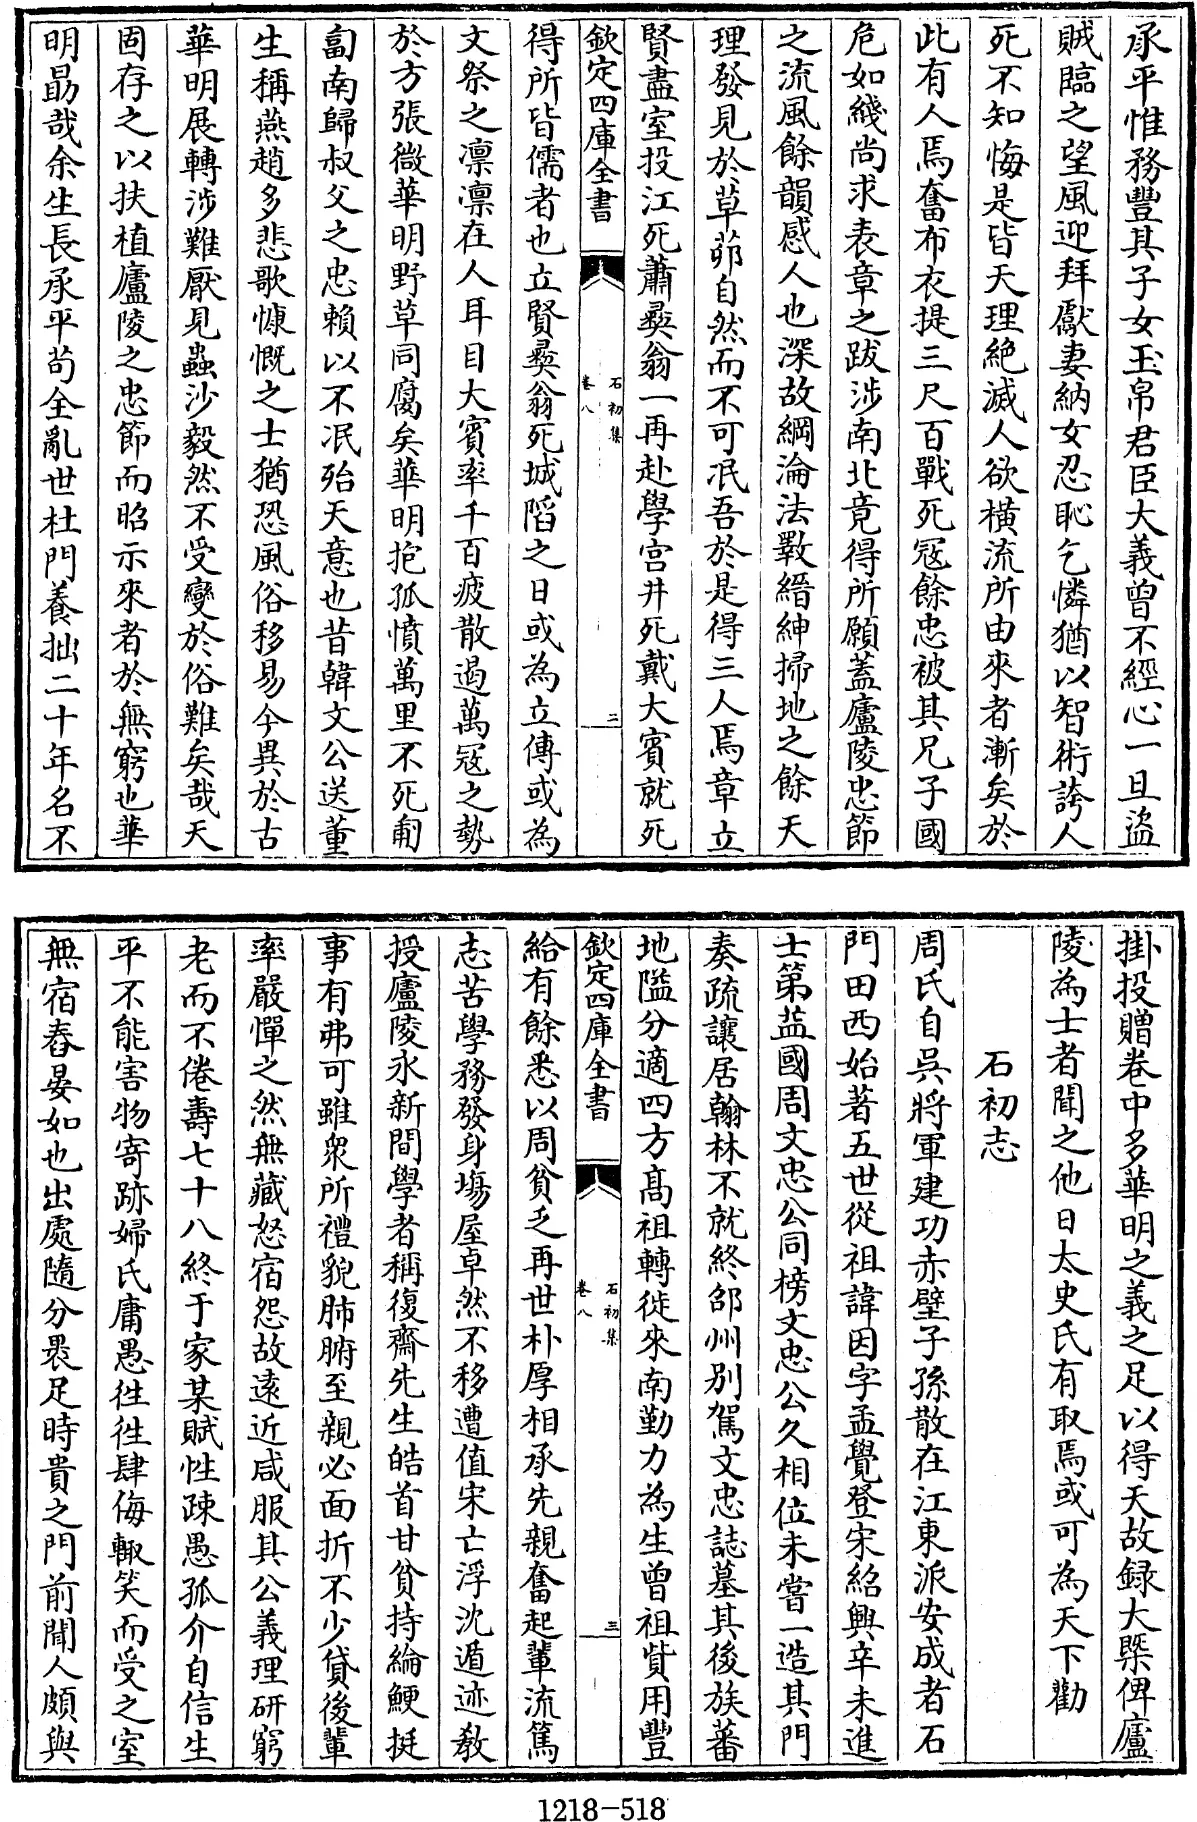 承平惟務豐其子女玉帛君臣大義曽不經心一旦盜
賊臨之望風迎拜獻妻納女忍恥乞憐猶以智術誇人
死不知悔是皆天理絶滅人欲橫流所由來者漸矣於
此有人焉奮布衣提三尺百戰死冦餘忠被其兄子國
危如綫尚求表章之跋涉南北竟得所願蓋廬陵忠節
之流風餘韻感人也深故綱淪法斁縉紳掃地之餘天
理發見於草茆自然而不可冺吾於是得三人焉章立
賢盡室投江死蕭彜翁一再赴學宫井死戴大賓就死
欽定四庫全書
石初集
卷八
二
得所皆儒者也立賢彜翁死城䧟之日或為立傳或為
文祭之凛凛在人耳目大賓率千百疲散遏萬冦之勢
於方張微華明野草同腐矣華明抱孤憤萬里不死匍
匐南歸叔父之忠賴以不冺殆天意也昔韓文公送董
生稱燕趙多悲歌慷慨之士猶恐風俗移易今異於古
華明展轉涉難厭見蟲沙毅然不受變於俗難矣哉天
固存之以扶植廬陵之忠節而昭示來者於無窮也華
明勗哉余生長承平苟全亂世杜門養拙二十年名不
掛投贈卷中多華明之義之足以得天故録大槩俾廬
陵為士者聞之他日太史氏有取焉或可為天下勸
石初志
周氏自吳將軍建功赤壁子孫散在江東派安成者石
門田西始著五世從祖諱因字孟覺登宋紹興辛未進
士第益國周文忠公同榜文忠公久相位未嘗一造其門
奏疏讓居翰林不就終郃州别駕文忠誌墓其後族蕃
地隘分適四方髙祖轉徙來南勤力為生曽祖貲用豐
欽定四庫全書
石初集
卷八
三
給有餘悉以周貧乏再世朴厚相承先親奮起輩流篤
志苦學務發身塲屋卓然不移遭值宋亡浮沈遁迹敎
授廬陵永新間學者稱復齋先生皓首甘貧持綸鯁挺
事有弗可雖衆所禮貌肺腑至親必面折不少貸後輩
率嚴憚之然無藏怒宿怨故遠近咸服其公義理研窮
老而不倦壽七十八終于家某賦性疎愚孤介自信生
平不能害物寄跡婦氏庸愚徃徃肆侮輙笑而受之室
無宿舂晏如也出處隨分褁足時貴之門前聞人頗與
1218-518